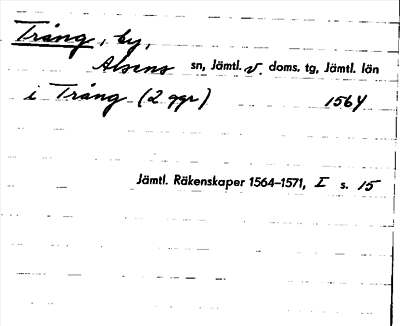 Trång, by,
Alsens sn, Jämtl. v. doms. tg, Jämtl. län
i Trång (2 ggr) 1564
Jämtl. Räkenskaper 1564–1571, I s. 15